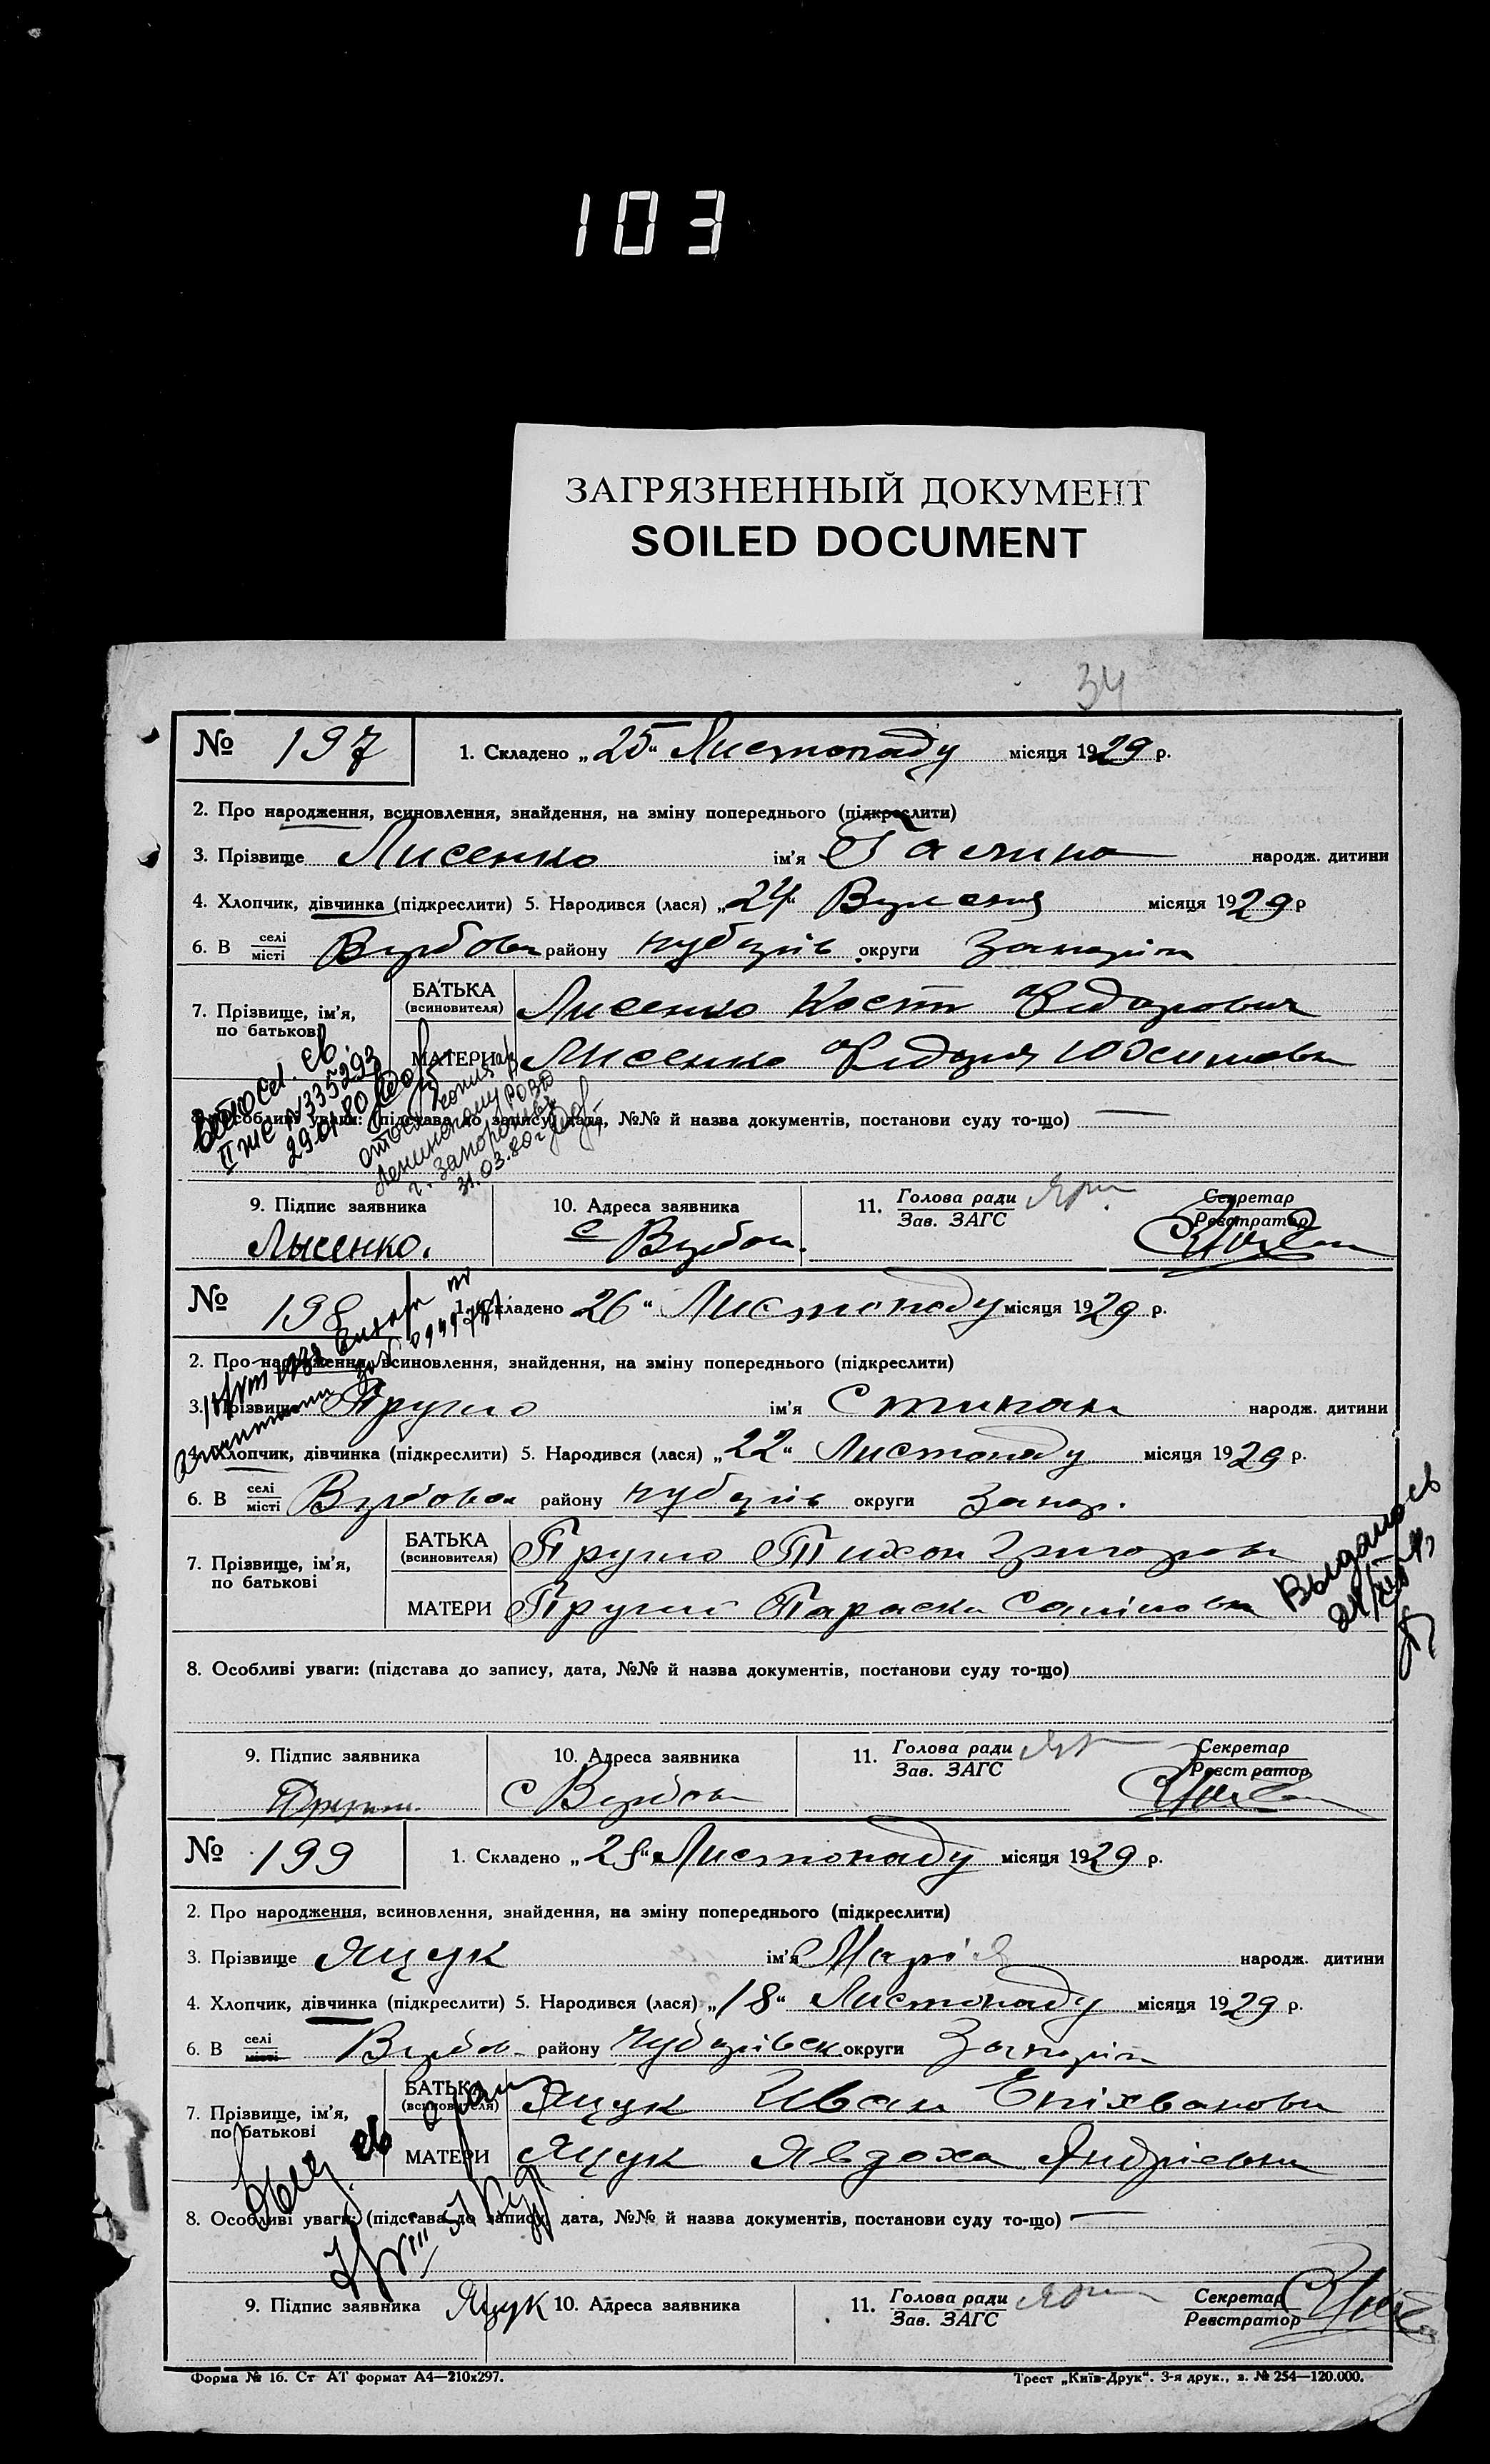 103
ЗАГРЯЗНЕННЫЙ ДОКУМЕНТ
SOILED DOCUMENT
34
№ 197 1. Складено „25“ Листопаду місяця 1929 р.
2. Про народження, всиновлення, знайдення, на зміну попереднього (підкреслити)
3. Прізвище Лисенко ім'я Галина народж. дитини
4. Хлопчик, дівчинка (підкреслити) 5. Народився (лася) „24“ місяця 1929 р
6. В селі місті Вербова району округи
7. Прізвище, ім'я, по батькові
БАТЬКА (всиновителя) Лисенко Кость Федорович
МАТЕРИ Лисенко
335293
29.01.80
копия
г. Запорожья
31.03.80г
8. Особливі уваги: (підстава до запису, дата, №№ й назва документів, постанови суду то-що)
9. Підпис заявника 10. Адреса заявника 11. Голова ради Зав. ЗАГС Секретар Реєстратор
Лысенко. с Вербова
№ 198 1. Складено 26“ Листопаду місяця 1929 р.
2. Про народження, всиновлення, знайдення, на зміну попереднього (підкреслити)
3. Прізвище ім'я Степан народж. дитини
4. Хлопчик, дівчинка (підкреслити) 5. Народився (лася) „22“ Листопаду місяця 1929 р.
6. В селі місті Вербова району округи Запор.
7. Прізвище, ім'я, по батькові
БАТЬКА (всиновителя) Тихон Григоров
МАТЕРИ Параска
Выдалось
8. Особливі уваги: (підстава до запису, дата, №№ й назва документів, постанови суду то-що)
9. Підпис заявника 10. Адреса заявника 11. Голова ради Зав. ЗАГС Секретар Реєстратор
с Вербова
№ 199 1. Складено „28“ Листопаду місяця 1929 р.
2. Про народження, всиновлення, знайдення, на зміну попереднього (підкреслити)
3. Прізвище Ящук ім'я Марія народж. дитини
4. Хлопчик, дівчинка (підкреслити) 5. Народився (лася) „18“ Листопаду місяця 1929 р.
6. В селі місті району округи
7. Прізвище, ім'я, по батькові
БАТЬКА (всиновителя) Ящук Иван
МАТЕРИ Ящук Явдоха Андріевна
8. Особливі уваги: (підстава до запису, дата, №№ й назва документів, постанови суду то-що)
9. Підпис заявника Ящук 10. Адреса заявника 11. Голова ради Зав. ЗАГС Секретар Реєстратор
Форма № 16. Ст АТ формат А4—210х297. Трест „Київ-Друк“. 3-я друк., з. № 254—120.000.